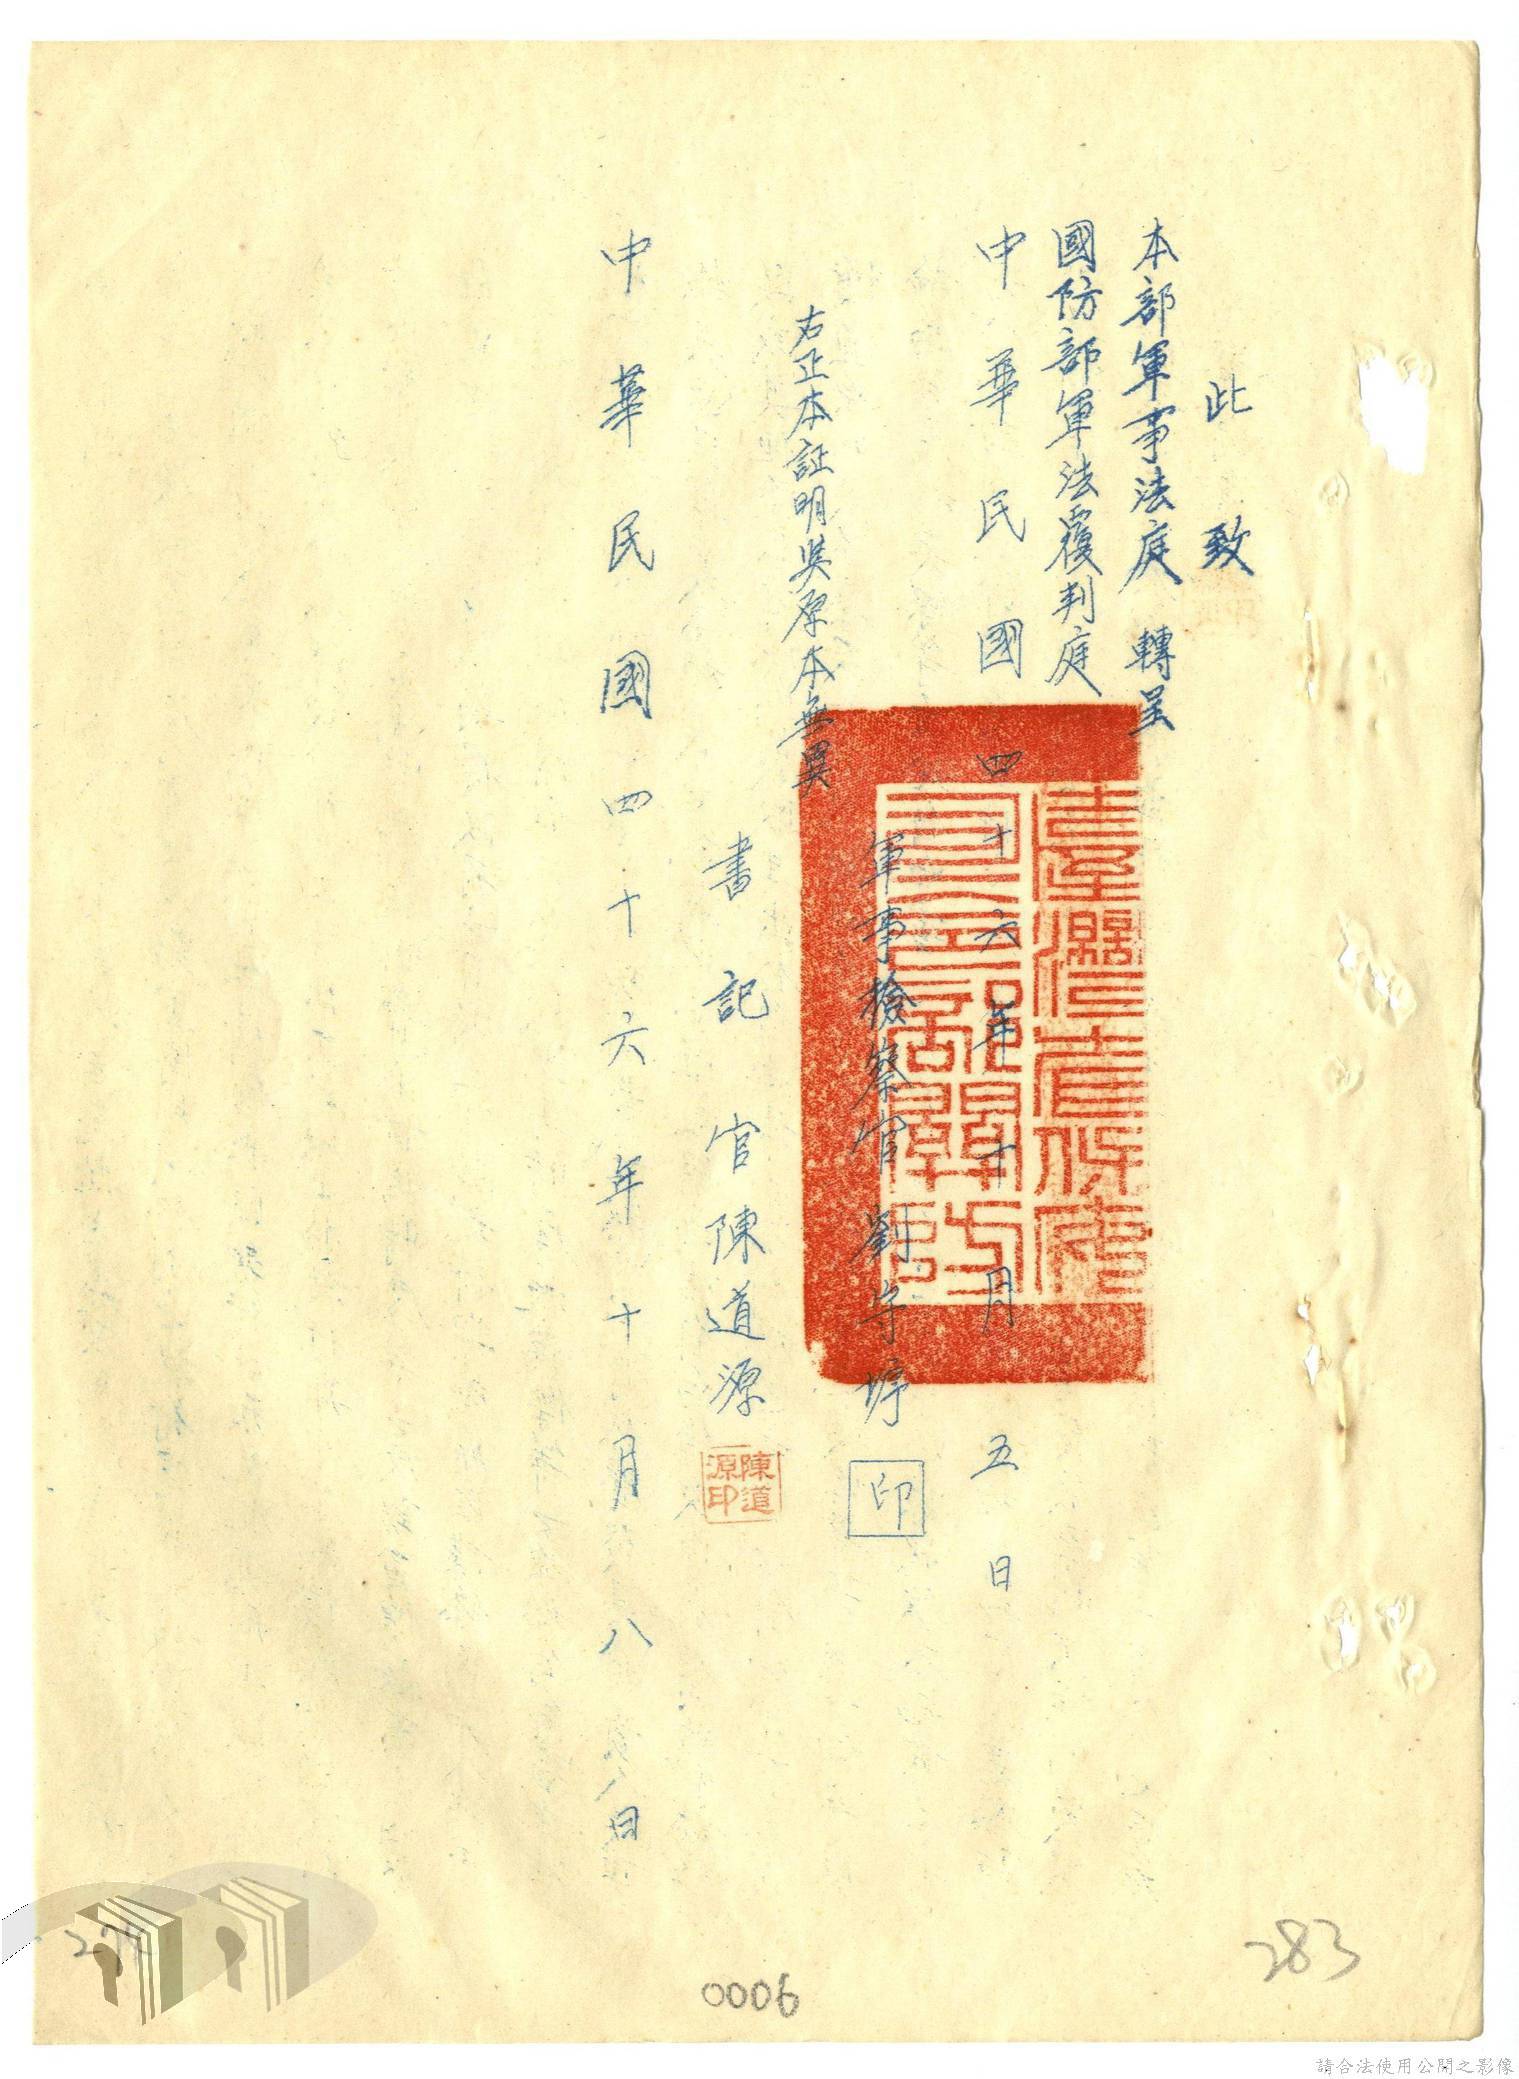 此致
本部軍事法庭 轉呈
國防部軍法覆判庭
中華民國四十六年十月五日
軍事檢察官劉守
印
右正本証明與原本無異
書記官陳道源
陳道源印
中華民國四十六年十月八日
283
0006
請合法使用公開之影像